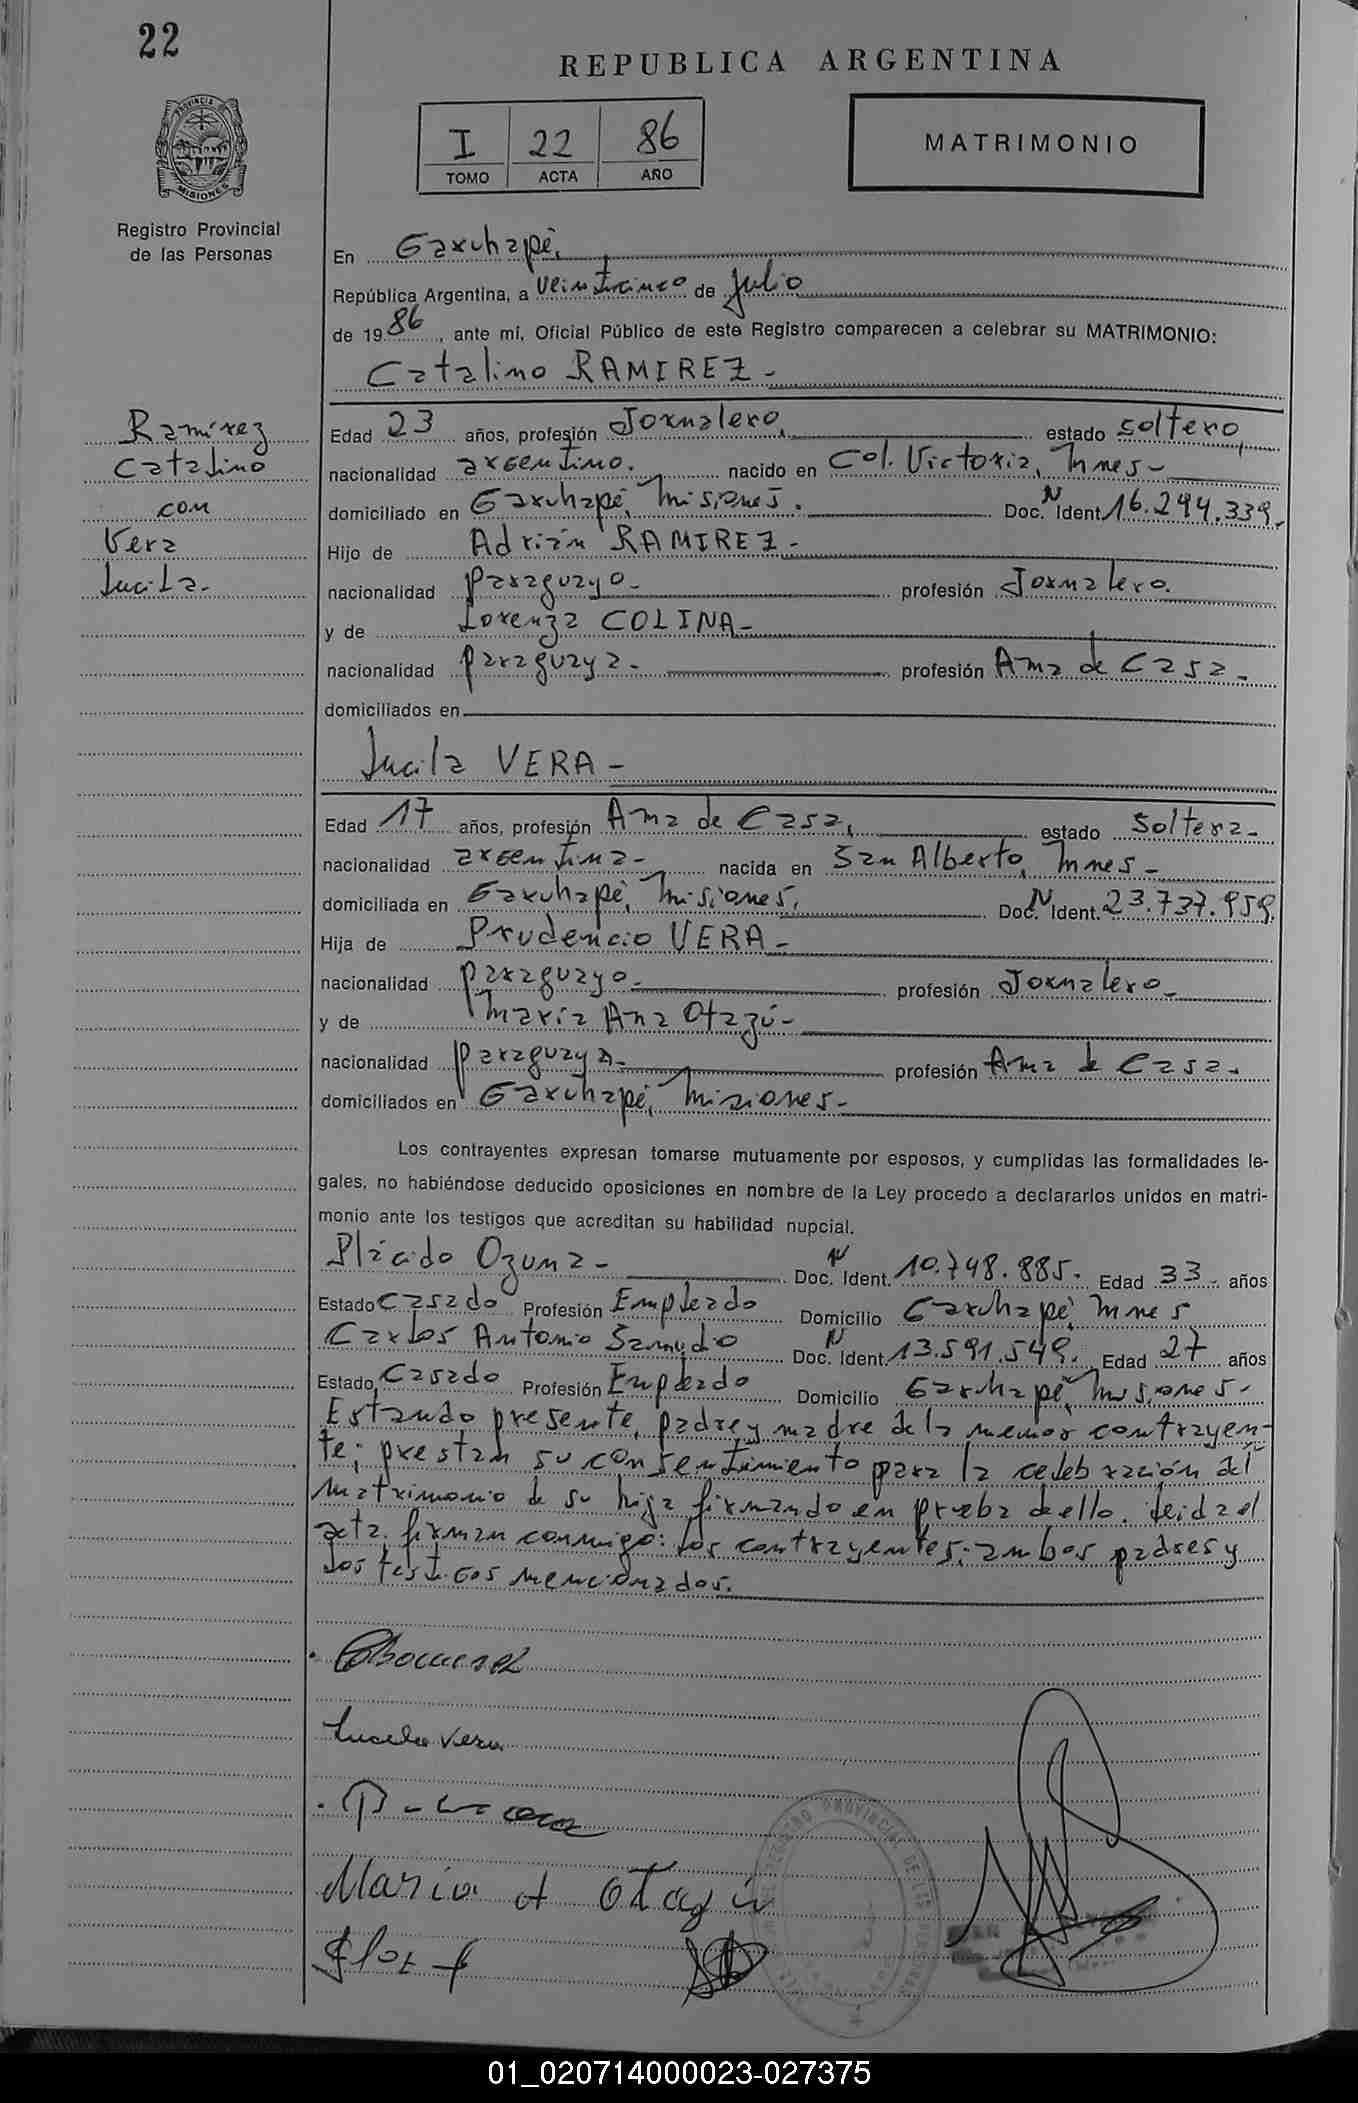 22
REPUBLICA ARGENTINA
I 22 86
TOMO ACTA AÑO
MATRIMONIO
PROVINCIA
MISIONES
Registro Provincial
de las Personas
En Garuhapé,
República Argentina, a veinticinco de Julio
de 1986, ante mí, Oficial Público de este Registro comparecen a celebrar su MATRIMONIO:
Catalino RAMIREZ-
Ramírez
Catalino
con
Vera
Lucila.
Edad 23 años, profesión Jornalero, estado soltero,
nacionalidad argentino. nacido en Col. Victoria, Mnes-
domiciliado en Garuhapé, Misiones. Doc. N Ident. 16.294.339.
Hijo de Adrián RAMIREZ-
nacionalidad paraguayo- profesión Jornalero.
y de Lorenza COLINA-
nacionalidad paraguaya- profesión Ama de Casa-
domiciliados en
Lucila VERA-
Edad 17 años, profesión Ama de Casa, estado Soltera-
nacionalidad argentina- nacida en San Alberto, Mnes-
domiciliada en Garuhapé, Misiones, Doc. N Ident. 23.737.959.
Hija de Prudencio VERA-
nacionalidad paraguayo- profesión Jornalero-
y de María Ana Otazú-
nacionalidad paraguaya- profesión Ama de Casa-
domiciliados en Garuhapé, Misiones-
Los contrayentes expresan tomarse mutuamente por esposos, y cumplidas las formalidades le-
gales, no habiéndose deducido oposiciones en nombre de la Ley procedo a declararlos unidos en matri-
monio ante los testigos que acreditan su habilidad nupcial.
Plácido Ozuna- Doc. N Ident. 10.748.885. Edad 33 años
Estado Casado Profesión Empleado Domicilio Garuhapé, Mnes
Carlos Antonio Samudio Doc. N Ident. 13.591.549. Edad 27 años
Estado Casado Profesión Empleado Domicilio Garuhapé, Misiones-
Estando presente, padre y madre de la menor contrayen-
te; prestan su consentimiento para la celebración del
matrimonio de su hija firmando en prueba de ello. Leida el
acta. firman conmigo: los contrayentes; ambos padres y
los testigos mencionados.
Lucila Vera
Maria A Otazú
REGISTRO PROVINCIAL DE LAS PERSONAS
01_020714000023-027375